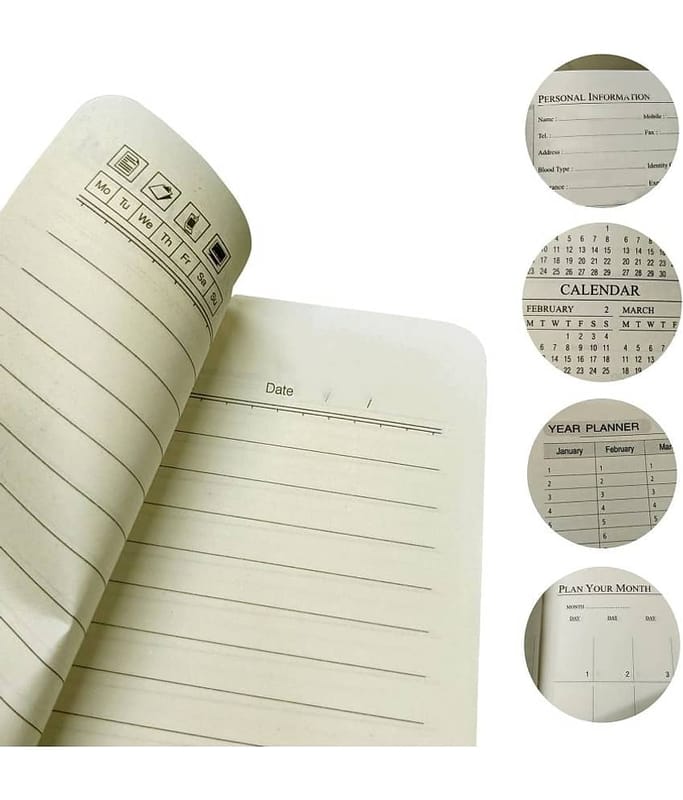 Mo Tu We Th Fr Sa Su
Date / /
PERSONAL INFORMATION
Name : Mobile :
Tel. : Fax :
Address :
Blood Type : Identity
1
4 5 6 7 8 6 7 8
10 11 12 13 14 15 13 14 15 16
17 18 19 20 21 22 20 21 22 23
23 24 25 26 27 28 29 27 28 29 30
CALENDAR
FEBRUARY 2 MARCH
M T W T F S S M T W T F
1 2 3 4
6 7 8 9 10 11 4 5 6 7
14 15 16 17 18 11 12 13 14
22 23 24 25 18 19
YEAR PLANNER
January February
1 1 1
2 2 2
3 3 3
4 4 4
5 5 5
6
PLAN YOUR MONTH
MONTH
DAY DAY DAY
1 2 3